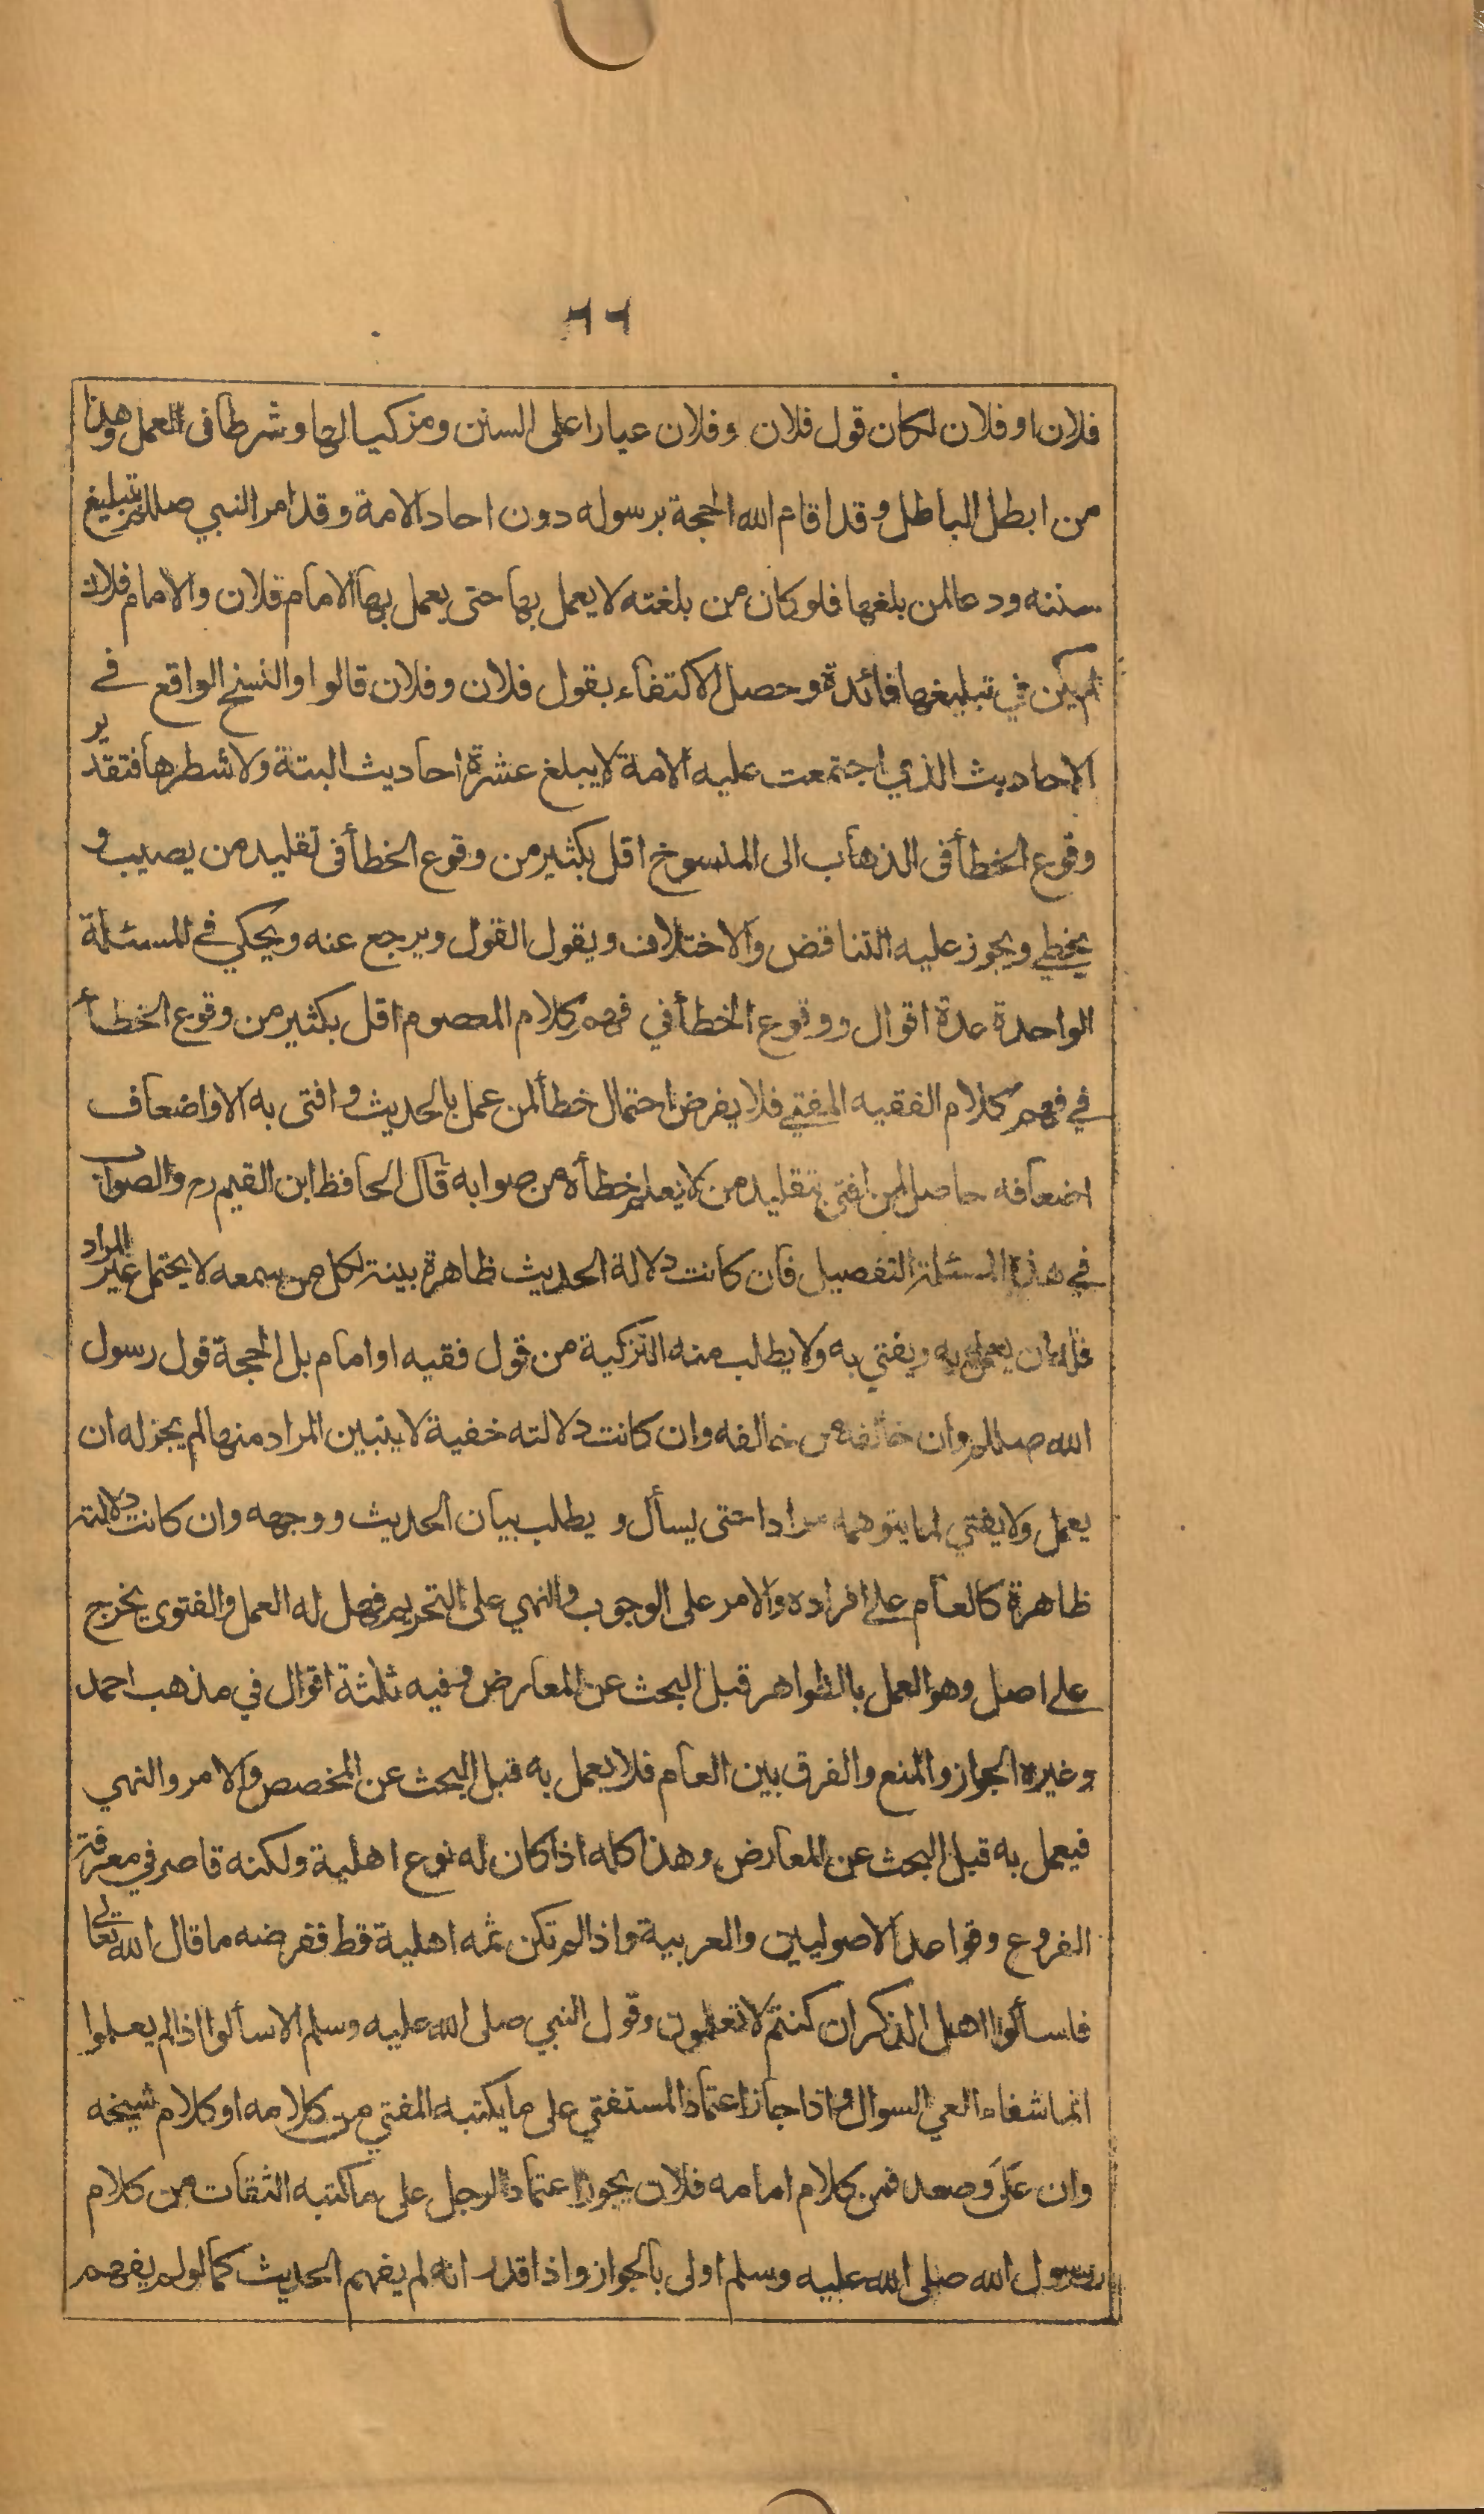 ٦٦
فلان او فلان لكان قول فلان وفلان عيارا على السنن ومزكيا لها وشرطا فى العمل وهذا
من ابطل الباطل وقد اقام الله الحجة برسوله دون احاد الامة وقد امر النبي صللم بتبليغ
سننه ودعا لمن بلغها فلو كان من بلغته لا يعمل بها حتى يعمل بها الامام فلان والامام فلان
لم يكن في تبليغها فائدة وحصل الاكتفاء بقول فلان وفلان قالوا والنسخ الواقع في
الاحاديث الذي اجتمعت عليه الامة لا يبلغ عشرة احاديث البتة ولا شطرها فتقدير
وقوع الخطأ فى الذهاب الى المنسوخ اقل بكثير من وقوع الخطأ فى تقليد من يصيب و
يخطي ويجوز عليه التناقض والاختلاف ويقول القول ويرجع عنه ويحكي في المسئلة
الواحدة عدة اقوال ووقوع الخطأ في فهم كلام المعصوم اقل بكثير من وقوع الخطأ
في فهم كلام الفقيه المفتي فلا يفرض احتمال خطأ لمن عمل بالحديث وافتى به الا واضعاف
اضعافه حاصل لمن افتى بتقليد من لا يعلم خطأه من صوابه قال الحافظ ابن القيم رح والصواب
في هذه المسئلة التفصيل فان كانت دلالة الحديث ظاهرة بينة لكل من سمعه لا يحتمل غير المراد
فله ان يعمل به ويفتي به ولا يطلب منه التزكية من قول فقيه او امام بل الحجة قول رسول
الله صللم وان خالفه من خالفه وان كانت دلالته خفية لا يتبين المراد منها لم يجز له ان
يعمل ولا يفتي لما يتوهمه مرادا حتى يسأل و يطلب بيان الحديث ووجهه وان كانت دلالته
ظاهرة كالعام على افراده والامر على الوجوب والنهي على التحريم فهل له العمل والفتوى يخرج
على اصل وهو العمل بالظواهر قبل البحث عن المعارض وفيه ثلثة اقوال في مذهب احمد
وغيره الجواز والمنع والفرق بين العام فلا يعمل به قبل البحث عن المخصص والامر والنهي
فيعمل به قبل البحث عن المعارض وهذا كله اذا كان له نوع اهلية ولكنه قاصر في معرفة
الفروع وقواعد الاصوليين والعربية واذا لم تكن ثمه اهلية قط ففرضه ما قال الله تعالى
فاسألوا اهل الذكر ان كنتم لا تعلمون وقول النبي صلى الله عليه وسلم الا سألوا اذا لم يعلموا
انما شفاء العي السوال واذا جاز اعتماد المستفتي على ما يكتبه المفتي من كلامه او كلام شيخه
وان عَلَى وصعد فمن كلام امامه فلان يجوز اعتماد الرجل على ما كتبه الثقات من كلام
رسول الله صلى الله عليه وسلم اولى بالجواز واذا قدر انه لم يفهم الحديث كما لو لم يفهم